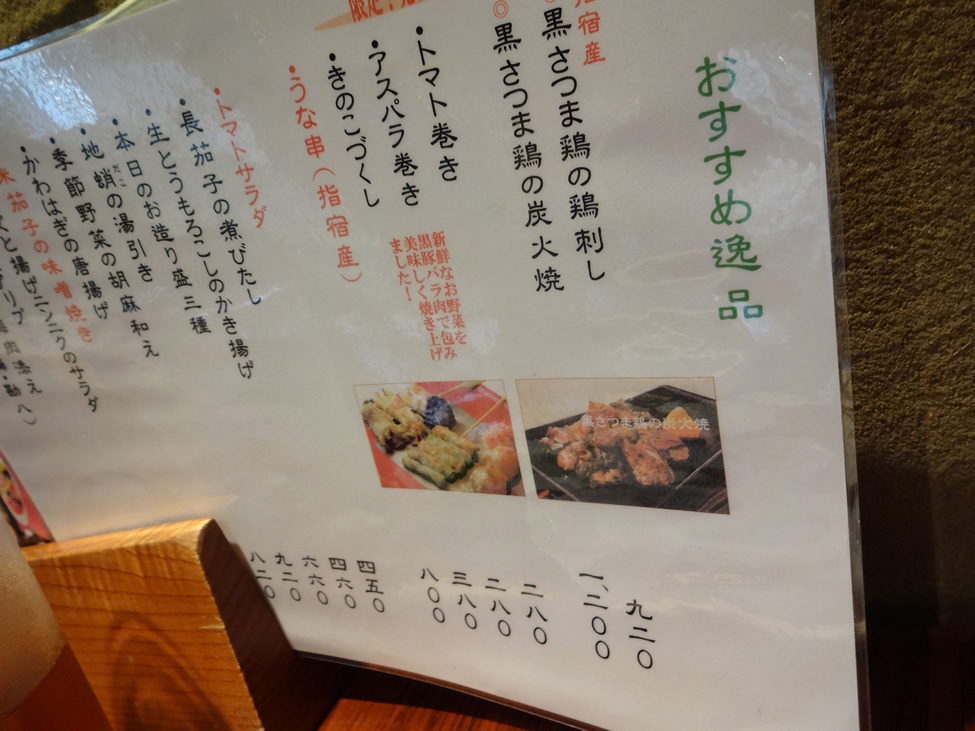 おすすめ逸品
指宿産
◎黒さつま鶏の鶏刺し
九二〇
◎黒さつま鶏の炭火焼
一、二〇〇
・トマト巻き
二八〇
・アスパラ巻き
二八〇
・きのこづくし
三八〇
・うな串（指宿産）
八〇〇
新鮮なお野菜を
黒豚バラ肉で包み
美味しく焼き上げ
ました！
黒さつま鶏の炭火焼
・トマトサラダ
四五〇
・長茄子の煮びたし
四六〇
・生とうもろこしのかき揚げ
六六〇
・本日のお造り盛三種
九二〇
・地蛸の湯引き
だこ
八二〇
・季節野菜の胡麻和え
・かわはぎの唐揚げ
茄子の味噌焼き
と揚げニンニクのサラダ